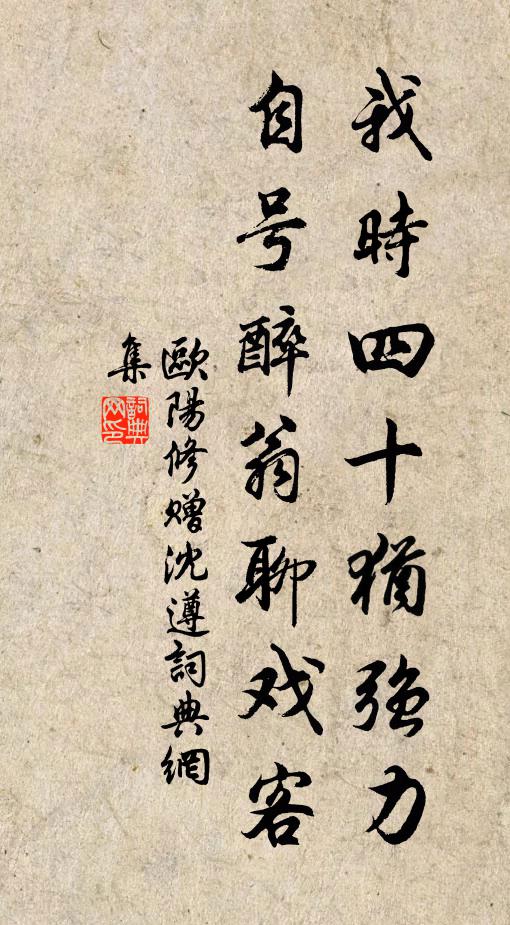 我時四十猶強力
自号醉翁聊戏客
歐陽修贈沈遵詞典網
集
詞典网印